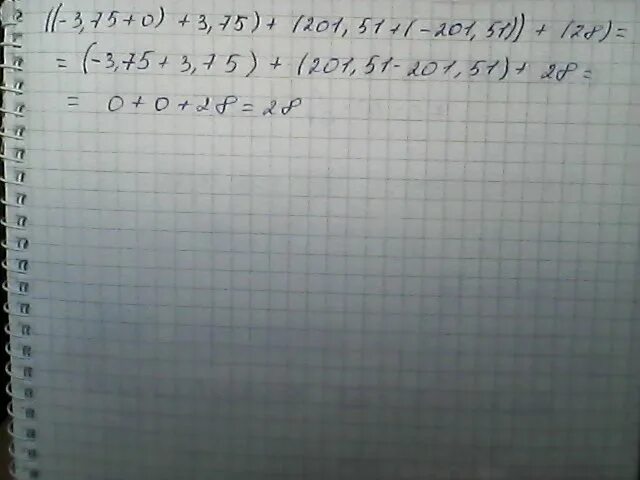 ((-3,75+0)+3,75)+(201,51+(-201,51))+(28)=
=(-3,75+3,75)+(201,51-201,51)+28=
= 0+0+28=28